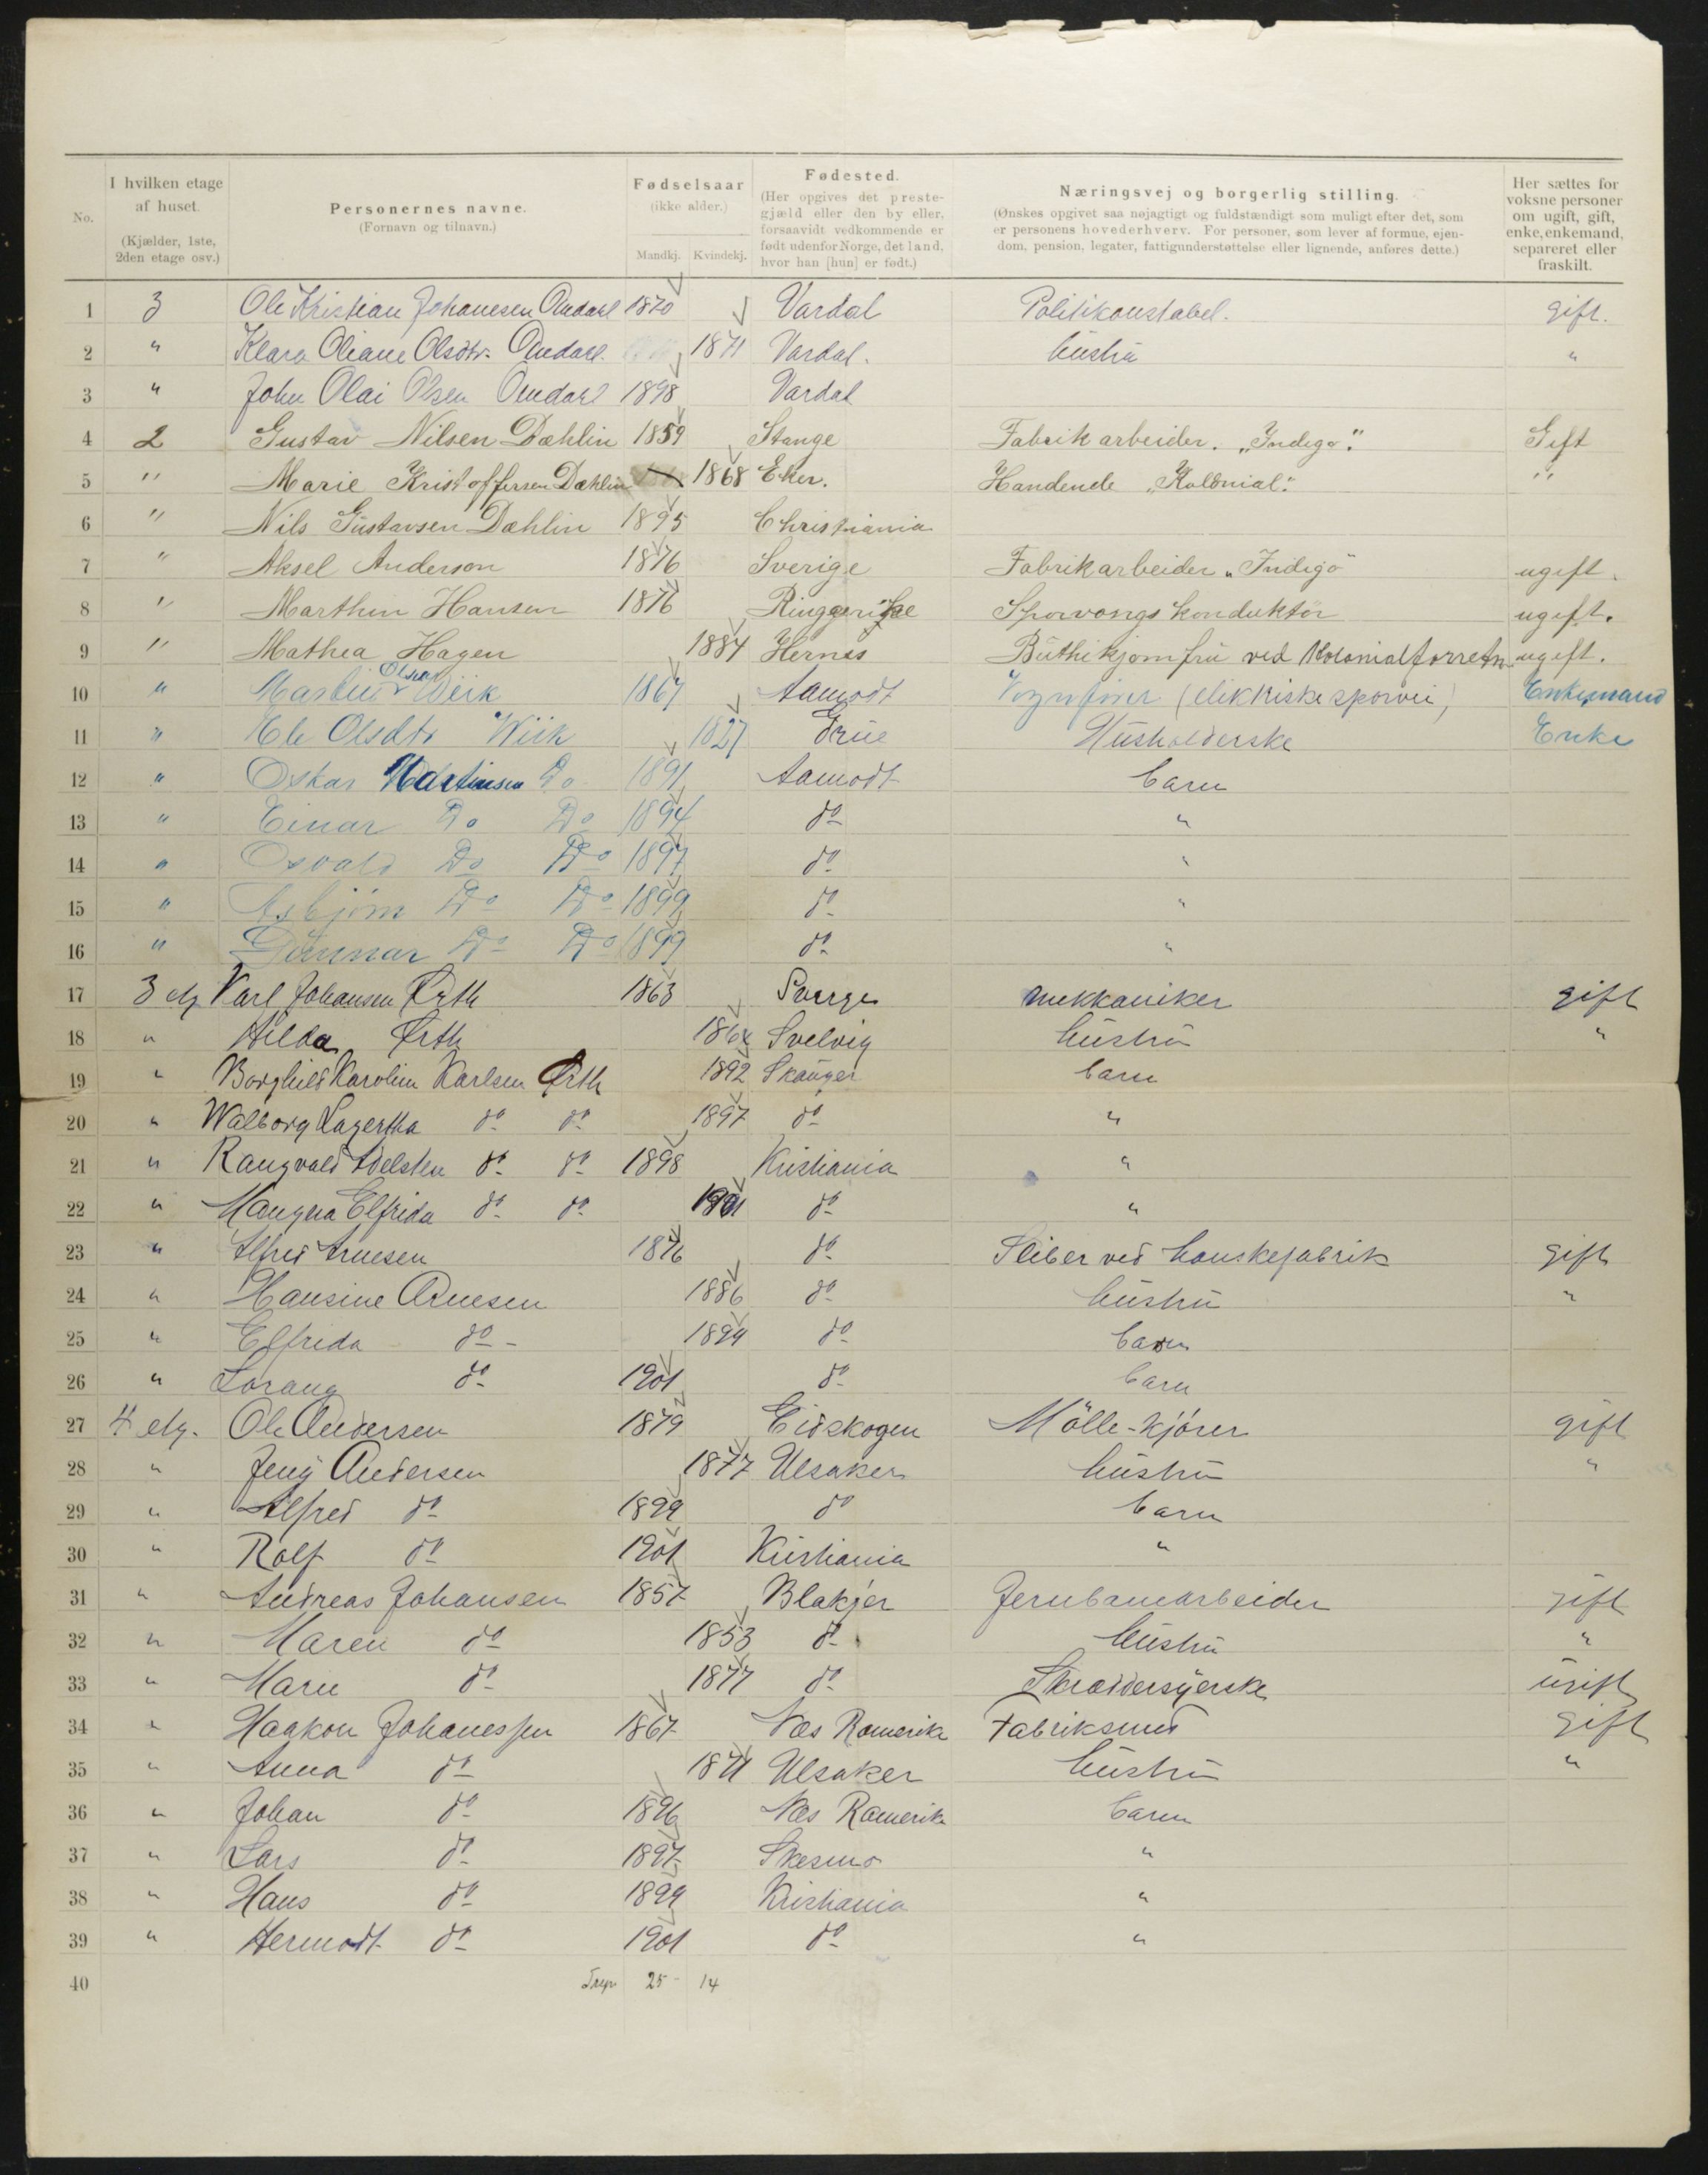 No.
I hvilken etage af huset. (Kjælder, 1ste, 2den etage osv.)
Personernes navne. (Fornavn og tilnavn.)
Fødselsaar (ikke alder.) Mandkj. Kvindekj.
Fødested. (Her opgives det prestegjæld eller den by eller, forsaavidt vedkommende er født udenfor Norge, det land, hvor han [hun] er født.)
Næringsvej og borgerlig stilling. (Ønskes opgivet saa nøjagtigt og fuldstændigt som muligt efter det, som er personens hovederhverv. For personer, som lever af formue, ejendom, pension, legater, fattigunderstøttelse eller lignende, anføres dette.)
Her sættes for voksne personer om ugift, gift, enke, enkemand, separeret eller fraskilt.
1 3 Ole Kristian Johanesen 1870 Vardal Politikonstabel. gift.
2 " Klara Oliane Olsdtr. 1871 Vardal. hüstrü "
3 " John Olai Olsen 1898 Vardal
4 2 Gustav Nilsen Dæhlin 1859 Stange Fabrik arbeider. „Indigo". Gift
5 " Marie Kristoffersen Dæhlin 1868 Eker. Handende „Kolonial". "
6 " Nils Güstavsen Dæhlin 1895 Christiania
7 " Aksel Anderson 1876 Sverige Fabrikarbeider „Indigo" ugift.
8 " Marthin Hansen 1876 Ringerike Sporvongs konduktör ugift.
9 " Mathea Hagen 1884 Hernes Büthikjomfrü ved Kolonialforretn. ugift.
10 " Martin Olsen Wiik 1867 Aamodt Vognfører (elektriske sporvei) Enkemand
11 " Olsdtr Wiik 1827 Grüe Hüsholderske Enke
12 " Oskar Martinsen Do 1891 Aamodt barn
13 " Einar Do Do 1894 do "
14 " Osvald Do Do 1897 do "
15 " Asbjørn Do Do 1899 do "
16 " Günnar Do Do 1899 do "
17 3 etg Karl Johansen Örth 1863 Sverge mekkaniker gift
18 " Hilda Örth 1864 Svelvig hüstrü "
19 " Borghild Karoline Karlsen Örth 1892 Skauger barn
20 " Walborg Lagertha do do 1897 do "
21 " Rangvald Adelsten do do 1898 Kristiania "
22 " Mangna Elfrida do do 1901 do "
23 " Alfred Arnesen 1876 do Sliber ved hanskefabrik gift
24 " Hansine Arnesen 1886 do hüstrü "
25 " Elfrida do 1899 do barn
26 " Lorang do 1901 do barn
27 4 etg. Ole Andersen 1879 Eidskogen Mölle-kjörer gift
28 " Jeny Andersen 1877 Ulsaker hüstrü "
29 " Alfred do 1899 do barn
30 " Rolf do 1901 Kristiania "
31 " Andreas Johansen 1857 Blakjer Jernbanearbeider gift
32 " Maren do 1853 do hüstrü "
33 " Marie do 1877 do Skræddersyerske ügift
34 " Haakon Johanessen 1867 Næs Romerike Fabriksmed gift
35 " Anna do 1871 Ulsaker hüstrü "
36 " Johan do 1896 Næs Romerike barn
37 " Lars do 1897 Skesmo "
38 " Hans do 1899 Kristiania "
39 " Hermodt do 1901 do "
40 25 - 14